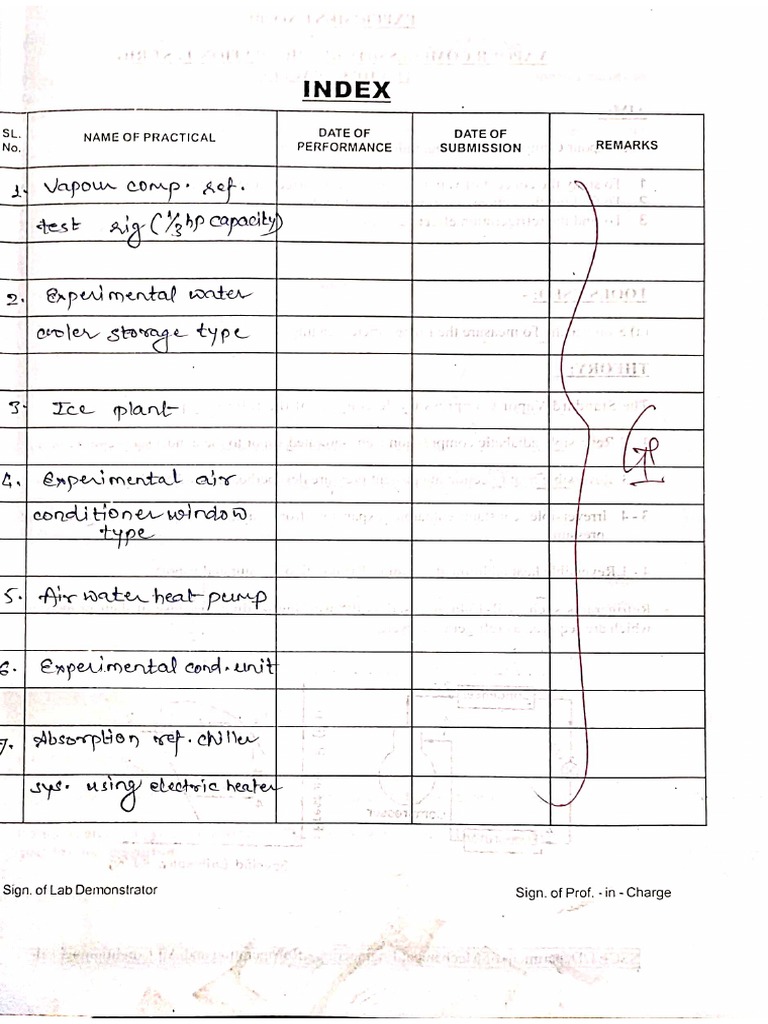 INDEX
SL. No.
NAME OF PRACTICAL
DATE OF PERFORMANCE
DATE OF SUBMISSION
REMARKS
1. Vapour comp. ref.
test rig (1/3 hp capacity)
2. Experimental water
cooler storage type
3. Ice plant
4. Experimental air
conditioner window
type
5. Air water heat pump
6. Experimental cond. unit
7. Absorption ref. chiller
sys. using electric heater
Sign. of Lab Demonstrator
Sign. of Prof. - in - Charge